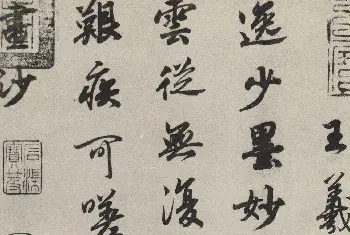 王羲
逸少墨妙
雲從無復
艱疾可嗟
畫沙